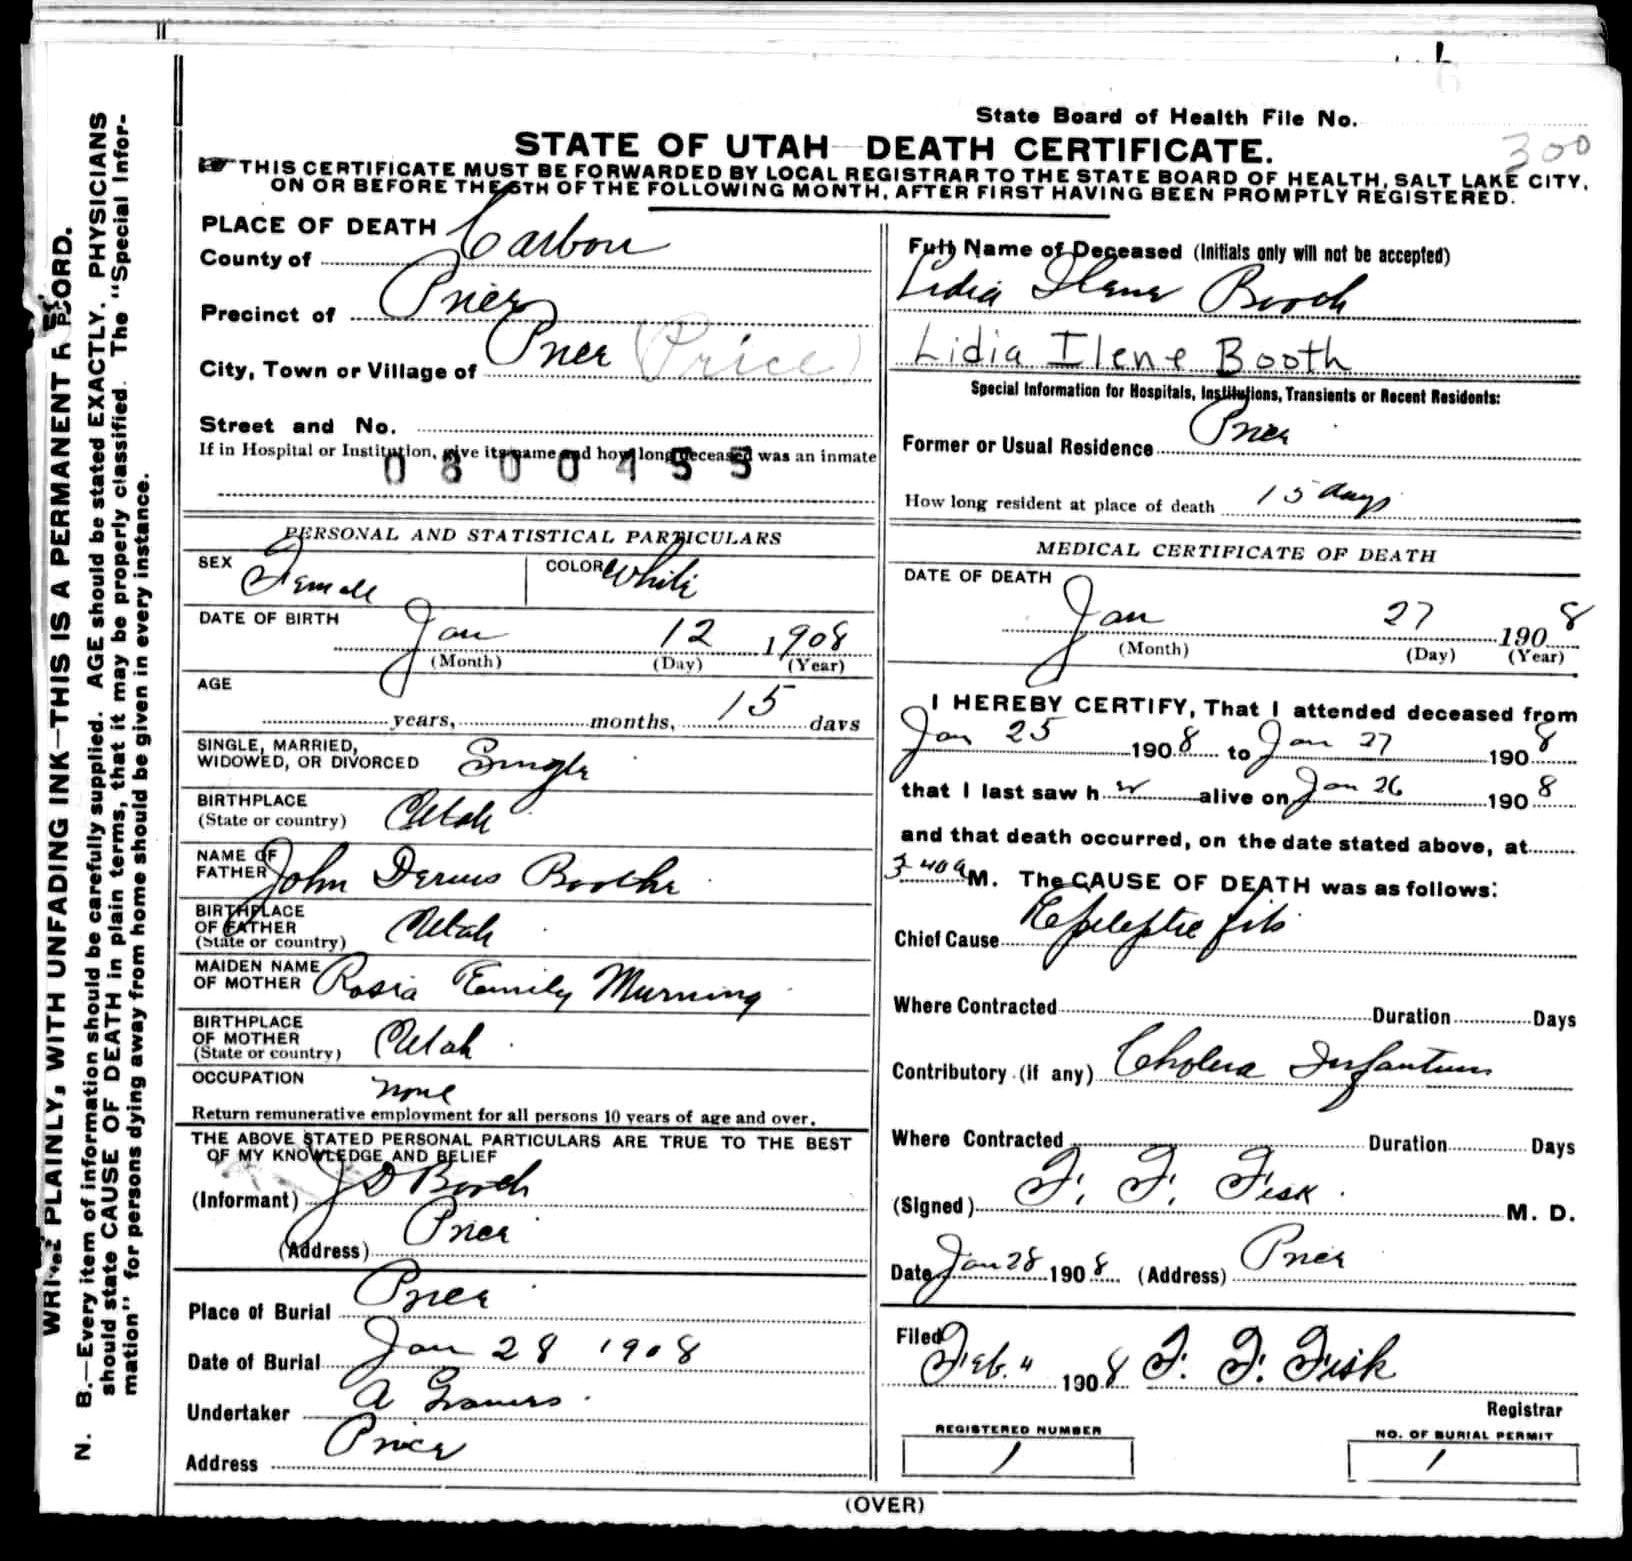 State Board of Health File No.
300
STATE OF UTAH—DEATH CERTIFICATE.
THIS CERTIFICATE MUST BE FORWARDED BY LOCAL REGISTRAR TO THE STATE BOARD OF HEALTH, SALT LAKE CITY,
ON OR BEFORE THE 5TH OF THE FOLLOWING MONTH, AFTER FIRST HAVING BEEN PROMPTLY REGISTERED.
WRITE PLAINLY, WITH UNFADING INK—THIS IS A PERMANENT RECORD.
N. B.—Every item of information should be carefully supplied. AGE should be stated EXACTLY. PHYSICIANS
should state CAUSE OF DEATH in plain terms, that it may be properly classified. The "Special Infor-
mation" for persons dying away from home should be given in every instance.
PLACE OF DEATH
County of Carbon
Precinct of Price
City, Town or Village of Price (Price)
Street and No.
If in Hospital or Institution, give its name and how long deceased was an inmate
0800455
PERSONAL AND STATISTICAL PARTICULARS
SEX Female COLOR White
DATE OF BIRTH Jan 12 1908
(Month) (Day) (Year)
AGE
years, months, 15 days
SINGLE, MARRIED,
WIDOWED, OR DIVORCED Single
BIRTHPLACE
(State or country) Utah
NAME OF
FATHER John Boothe
BIRTHPLACE
OF FATHER
(State or country) Utah
MAIDEN NAME
OF MOTHER Rosia Emily Murning
BIRTHPLACE
OF MOTHER
(State or country) Utah
OCCUPATION none
Return remunerative employment for all persons 10 years of age and over.
THE ABOVE STATED PERSONAL PARTICULARS ARE TRUE TO THE BEST
OF MY KNOWLEDGE AND BELIEF
(Informant) J D Booth
(Address) Price
Place of Burial Price
Date of Burial Jan 28 1908
Undertaker A
Address Price
Full Name of Deceased (Initials only will not be accepted)
Lidia Ilene Booth
Lidia Ilene Booth
Special Information for Hospitals, Institutions, Transients or Recent Residents:
Former or Usual Residence Price
How long resident at place of death 15 days
MEDICAL CERTIFICATE OF DEATH
DATE OF DEATH
Jan 27 1908
(Month) (Day) (Year)
I HEREBY CERTIFY, That I attended deceased from
Jan 25 1908 to Jan 27 1908
that I last saw h er alive on Jan 26 1908
and that death occurred, on the date stated above, at
3 40 a M. The CAUSE OF DEATH was as follows:
Chief Cause Epileptic fits
Where Contracted Duration Days
Contributory (if any) Cholera Infantum
Where Contracted Duration Days
(Signed) F. F. Fisk M. D.
Date Jan 28 1908 (Address) Price
Filed
Feb. 4 1908 F. F. Fisk
Registrar
REGISTERED NUMBER
1
NO. OF BURIAL PERMIT
1
(OVER)